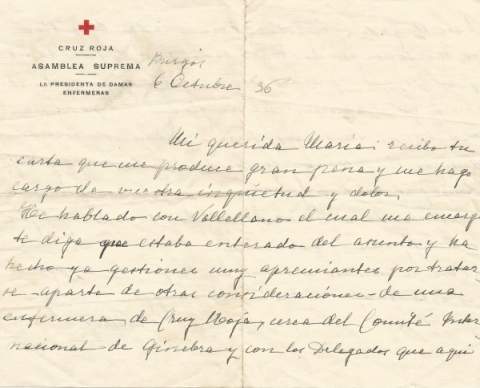 CRUZ ROJA
ASAMBLEA SUPREMA
LA PRESIDENTA DE DAMAS
ENFERMERAS
Burgos
6 Octubre 36
Mi querida Maria: recibo tu
carta que me produce gran pena y me hago
cargo de vuestra inquietud y dolor.
He hablado con Vallellano el cual me encarg
te diga que estaba enterado del asunto y ha
hecho ya gestiones muy apremiantes por tratar
se aparte de otras consideraciones de una
enfermera de Cruz Roja, cerca del Comité Inter
nacional de Ginebra y con los Delegados que aqui